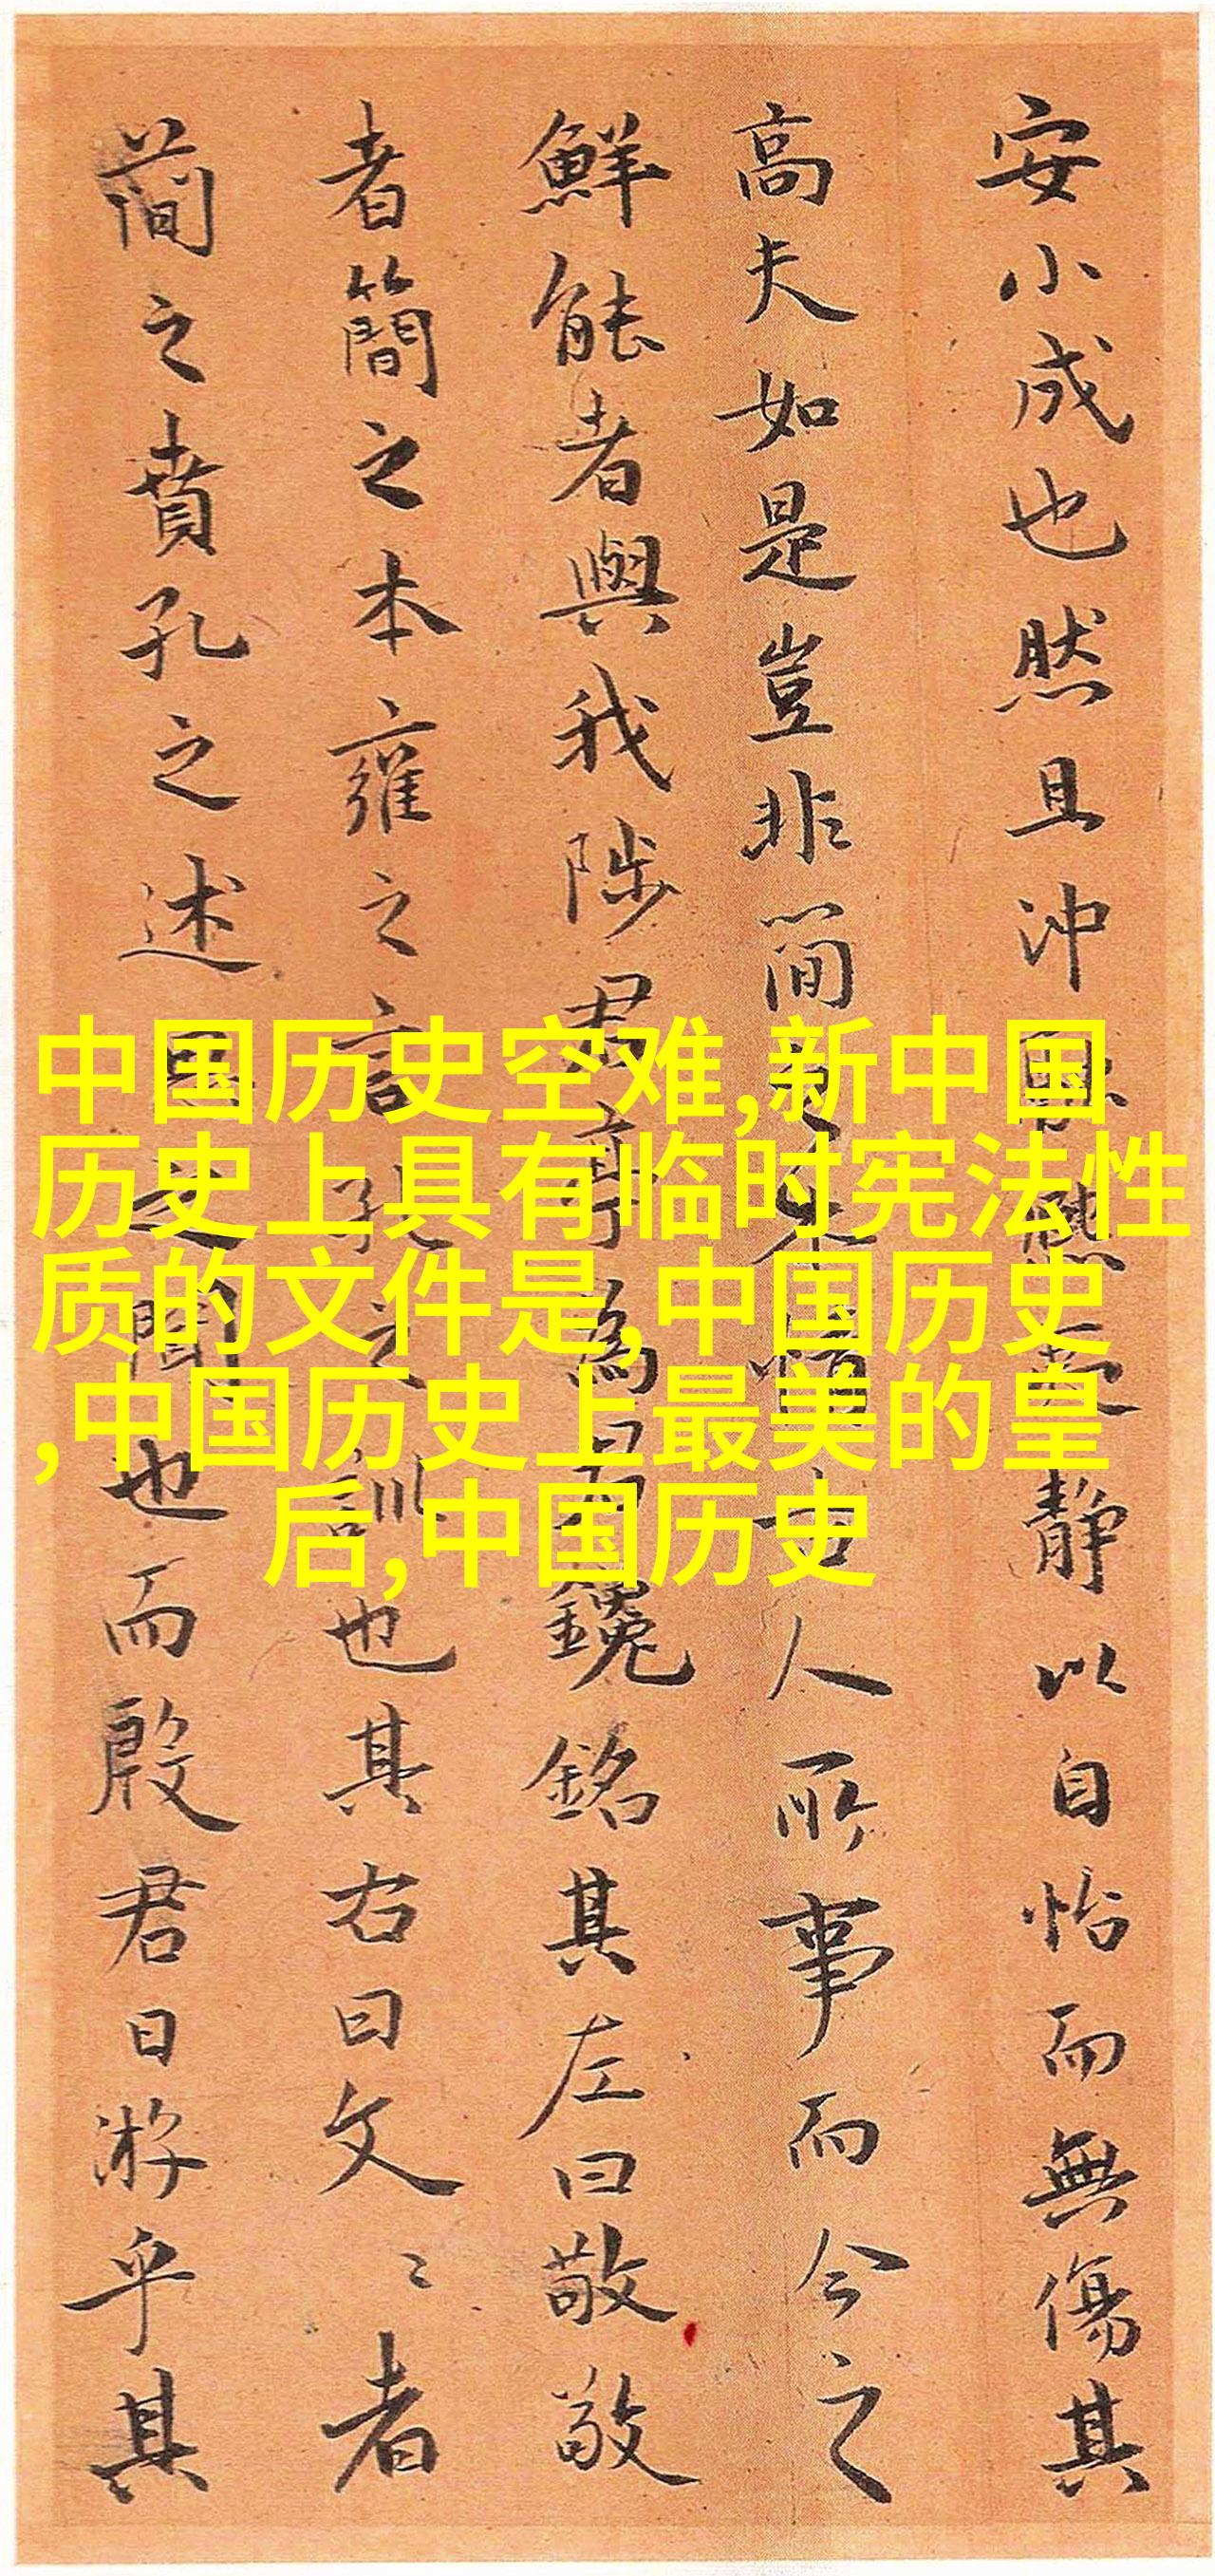 安小成也然且沖
靜以自怡而無傷其
高夫如是豈非簡
世人所事而今之
鮮能者與我陟君
鑱銘其左曰敬敬
者簡之本雍之言孔之
訓也其右曰文〻者
簡之賁孔之述
之間也而殷君日游乎其
中国历史空难,新中国
历史上具有临时宪法性
质的文件是,中国历史
,中国历史上最美的皇
后,中国历史